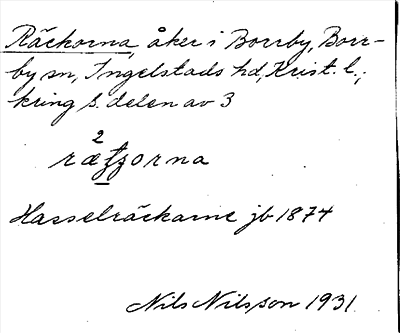 Räckorna, åker i Borrby, Borr-
by sn, Ingelstads hd, Krist. l.;
kring S. delen av 3
2
Hasselräckarne jb 1874
Nils Nilsson 1931